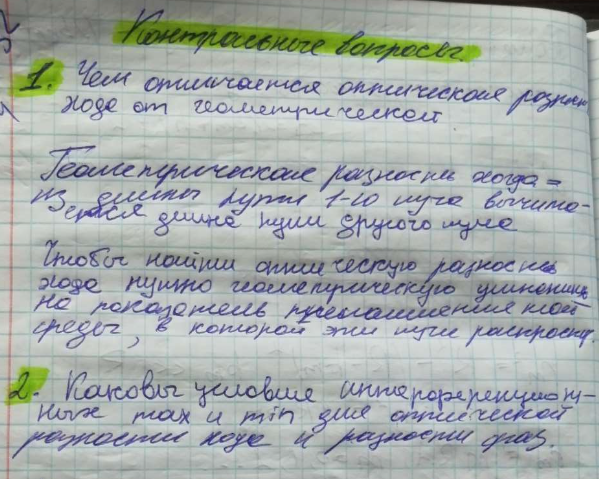 Контрольные вопросы.
1. Чем отличается оптическая разность
хода от геометрической
Геометрическая разность хода =
из длины пути 1-го луча вычита-
ется длина пути другого луча
Чтобы найти оптическую разность
хода нужно геометрическую умножить
на показатель преломления той
среды, в которой эти лучи распростр.
2. Каковы условия интерференцион-
ных max и min для оптической
разности хода и разности фаз.